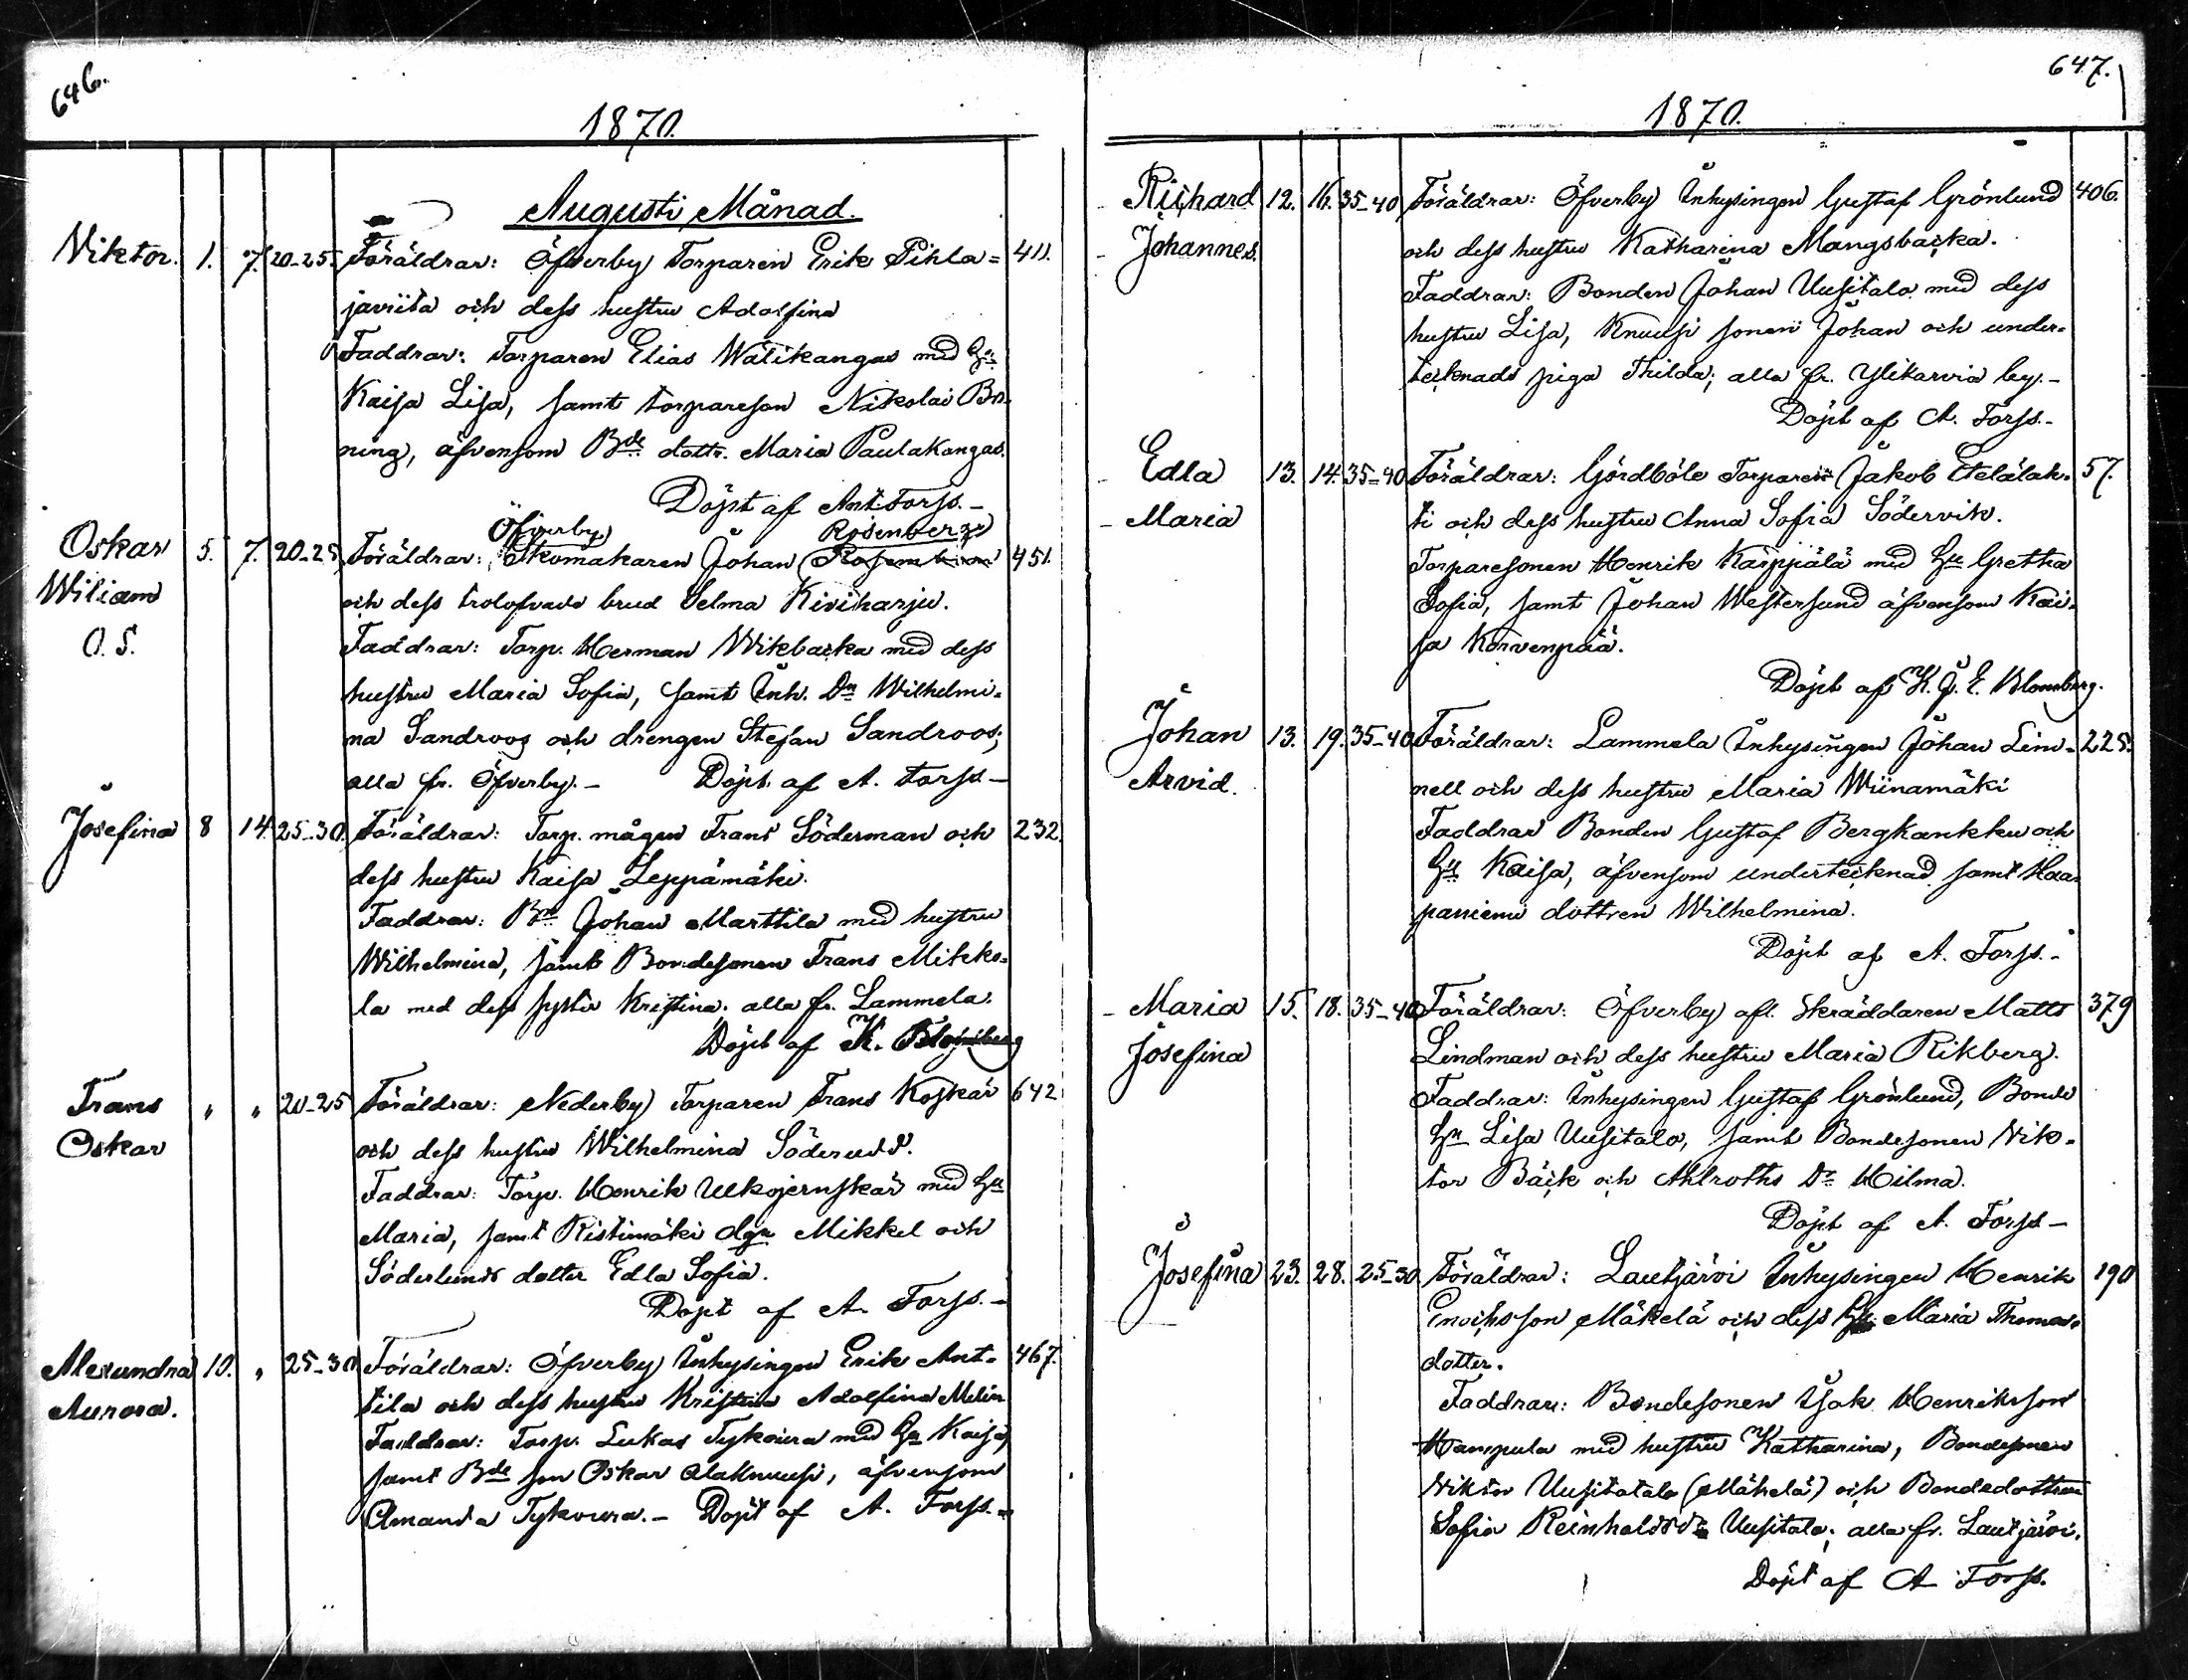 646.
1870.
Augusti Månad.
Viktor. 1. 7. 20-25. Föräldrar: Öfverby Torparen Erik Pihla= 411.
javiita och dess hustru Adolfina
Faddrar: Torparen Elias Wälikangas med Hu
Kaisa Lisa, samt torpareson Nikolai Bn
ning, äfvensom Bde dottr. Maria Paulakangas.
Döpt af Ant. Forss.-
Öfverby Rosenberg
Oskar 5. 7. 20-25 Föräldrar: Skomakaren Johan 451.
Wiliam och dess trolofvade brud Selma Kiviharju.
O. S. Faddrar: Torp. Herman Wikbacka med dess
hustru Maria Sofia, samt Inh. Dn Wilhelmi=
na Sandroos och drengen Stefan Sandroos;
alla fr. Öfverby.- Döpt af A. Forss-
Josefina 8 14. 25-30. Föräldrar: Torp. mågen Frans Söderman och 232.
dess hustru Kaisa Leppämäki.
Faddrar: Bn Johan Marttila med hustru
Wilhelmina, samt Bondesonen Frans Mikko=
la med dess syster Kristina. alla fr. Lammela.
Döpt af K. Blomberg
Frans " " 20-25 Föräldrar: Nederby Torparen Frans Koskär 642
Oskar och dess hustru Wilhelmina Söderudd.
Faddrar: Torp. Henrik Ulkojernskär med Hu
Maria, samt Ristimäki dgn Mikkel och
Söderlunds dotter Edla Sofia.
Döpt af A. Forss.-
Alexandra 10. " 25-30. Föräldrar: Öfverby Inhysingen Erik Ant= 467.
Aurora. tila och dess hustru Kristina Adolfina Melin
Faddrar: Torp. Lukas Tykoura med Hu Kaisa,
samt Bde son Oskar Alaknuusi, äfvensom
Amanda Tykoura.- Döpt af A. Forss.-
647.
1870.
Richard 12. 16. 35-40 Föräldrar: Öfverby Inhysingen Gustaf Grönlund 406.
Johannes. och dess hustru Katharina Mangsbacka.
Faddrar: Bonden Johan Uusitalo med dess
hustru Lisa, Knuusi sonen Johan och under=
tecknads piga Thilda; alla fr. Ylikarvia by.-
Döpt af A. Forss.-
Edla 13. 14. 35-40 Föräldrar: Gördböle Torparen Jakob Etelälah= 57.
Maria ti och dess hustru Anna Sofia Södervik.
Torparesonen Henrik Karppälä med Hu Gretha
Sofia, samt Johan Westersund äfvensom Kai=
sa Korvenpää.
Döpt af K. J. E. Blomberg.
Johan 13. 19. 35-40 Föräldrar: Lammela Inhysingen Johan Lin= 225.
Arvid. nell och dess hustru Maria Wiinamäki
Faddrar Bonden Gustaf Bergkankku och
Hu Kaisa, äfvensom undertecknad samt Haa=
paniemi dottren Wilhelmina.
Döpt af A. Forss.-
Maria 15. 18. 35-40 Föräldrar: Öfverby afl. Skräddaren Matts 379
Josefina Lindman och dess hustru Maria Rikberg.
Faddrar: Inhysingen Gustaf Grönlund, Bonde
Hu Lisa Uusitalo, samt Bondesonen Vik=
tor Bäck och Ahlroths Dr Hilma.
Döpt af A. Forss-
Josefina 23. 28. 25-30 Föräldrar: Lautjärvi Inhysingen Henrik 190
Enochsson Mäkelä och dess Hu Maria Thomas=
dotter.
Faddrar: Bondesonen Isak Henriksson
Hampula med hustru Katharina, Bondesonen
Viktor Uusitalo (Mäkelä) och Bondedottren
Sofia Reinholdsdr Uusitalo; alla fr. Lautjärvi.
Döpt af A Forss.